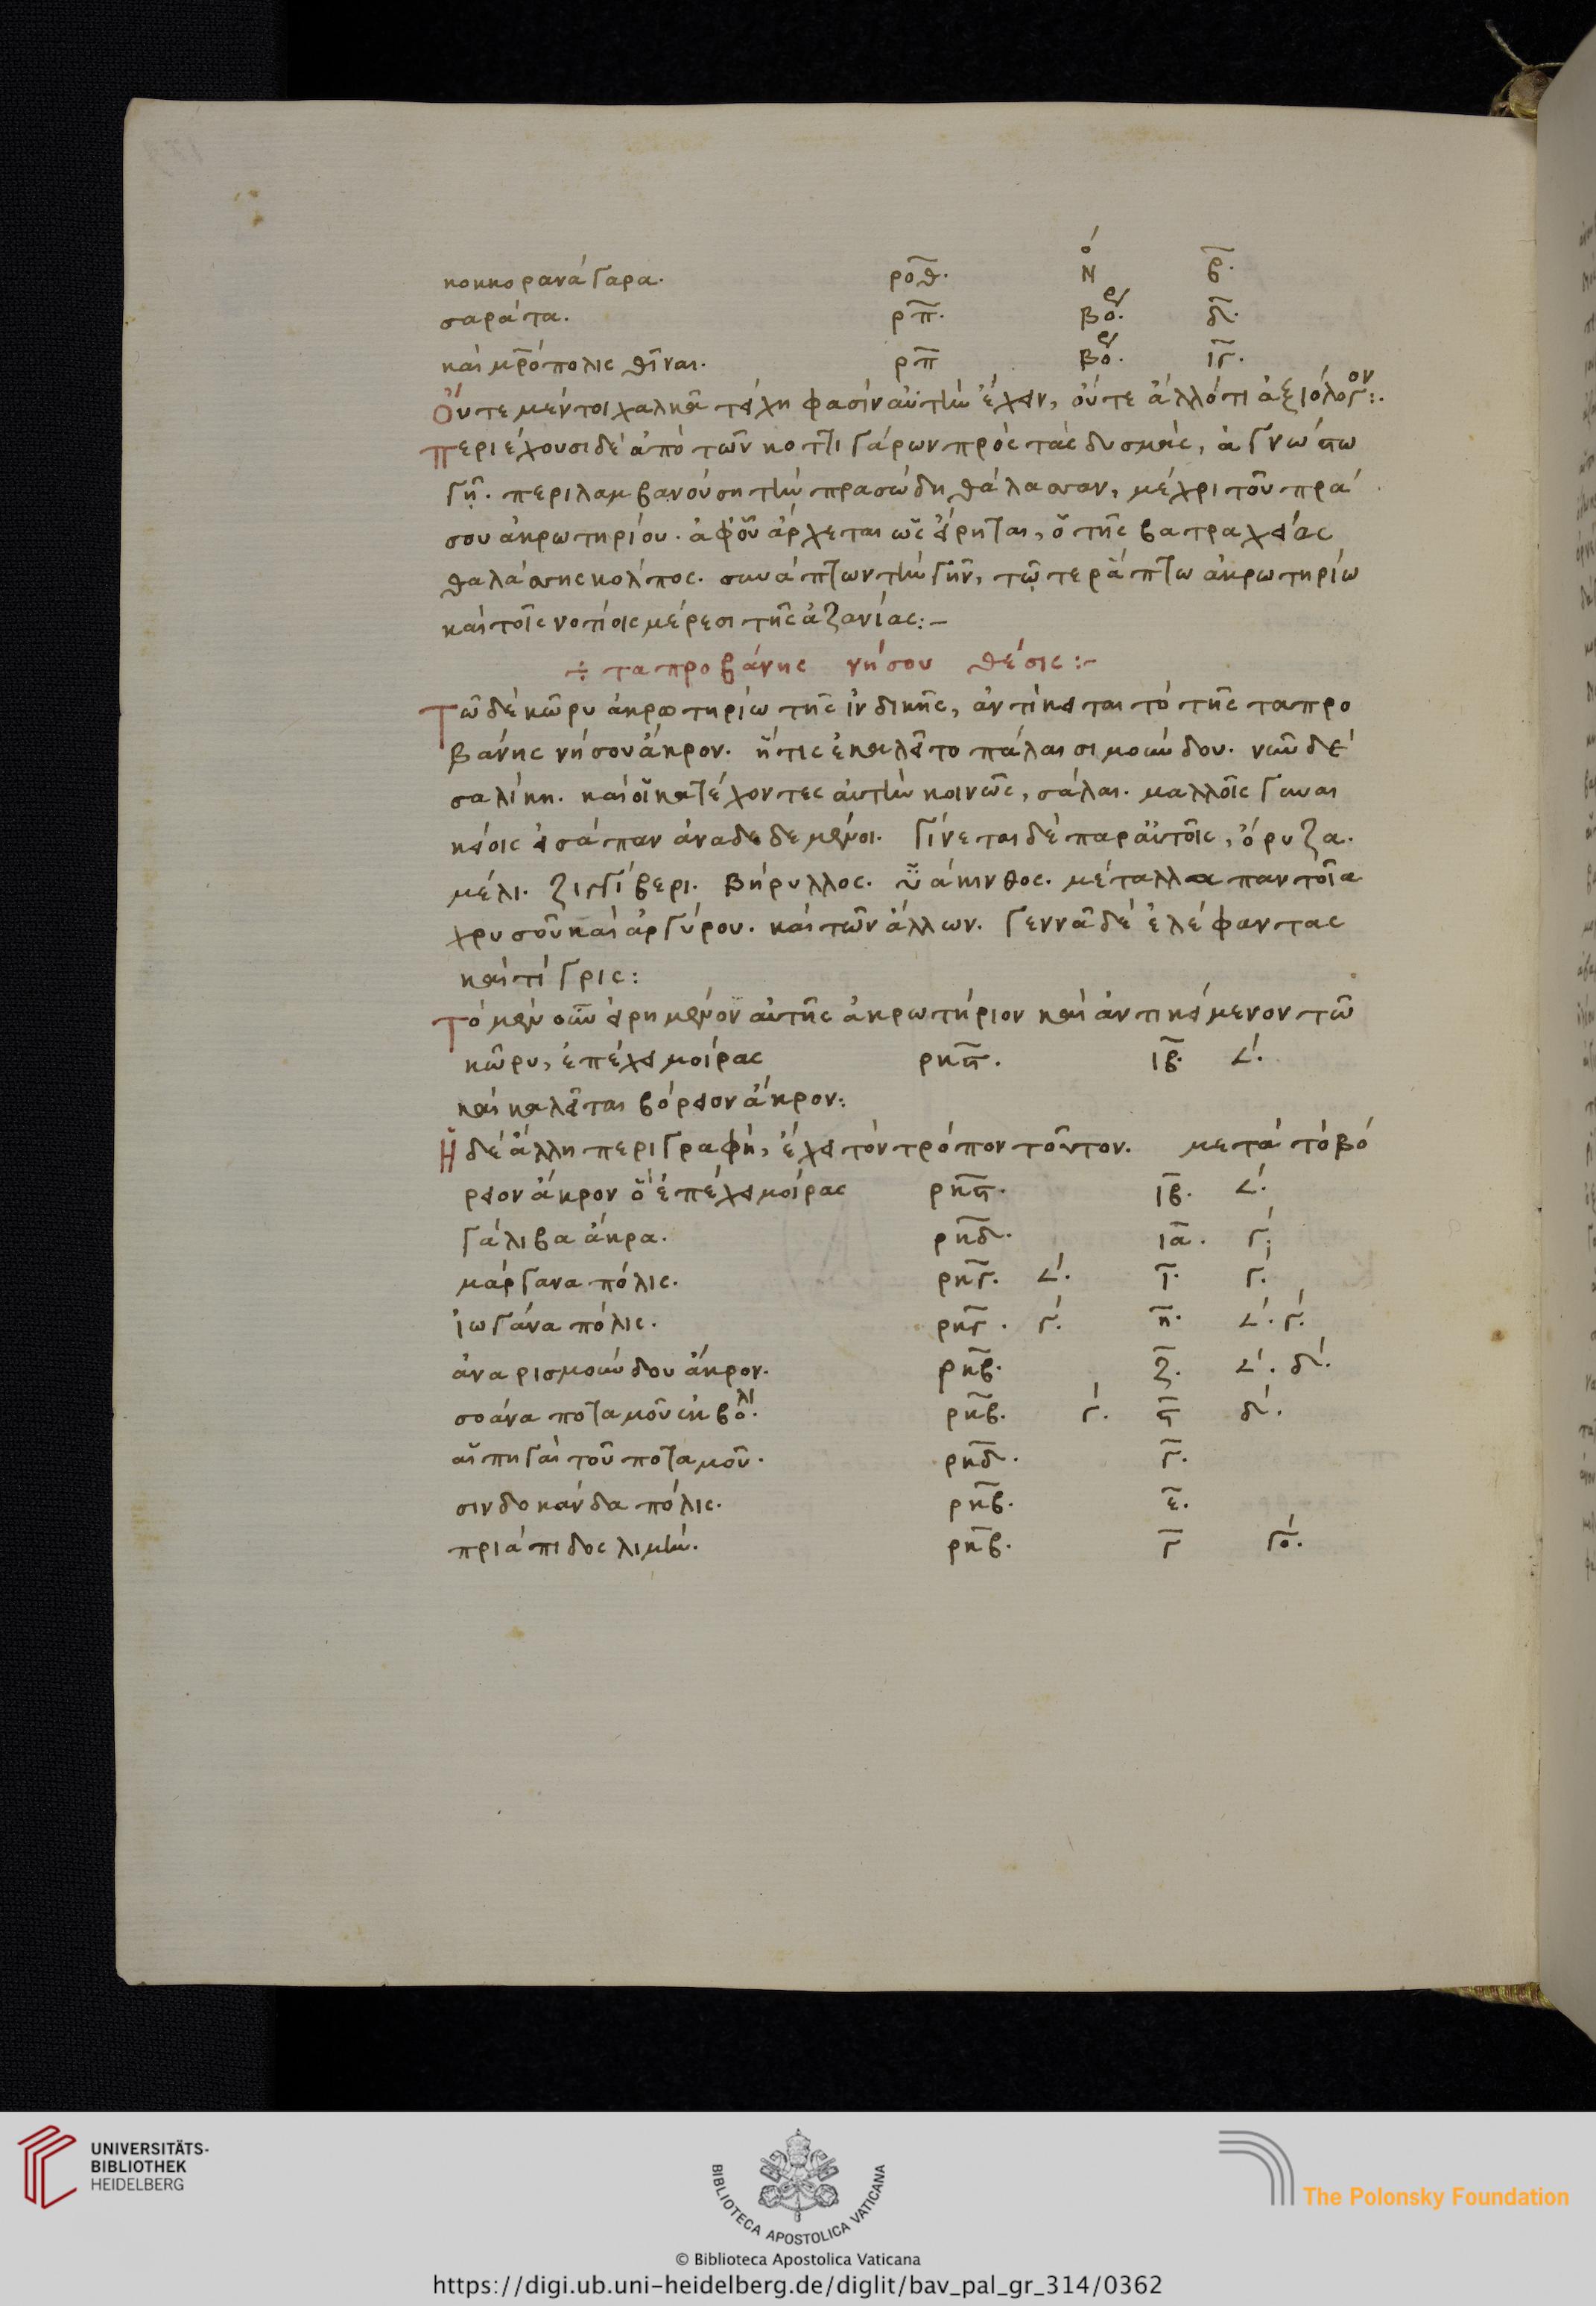 κοκκορανάγαρα. ροθ. Νο β.
σαράτα. ρπ. βορ. δ.
καὶ μρόπολις θῖναι. ρπ βορ. ιγ.
Ὄυτε μέντοι χαλκᾶ τείχη φασὶν αὐτὴν ἔχειν, οὔτε ἄλλό τι ἀξιόλογον:.
περιέχουσι δὲ ἀπὸ τῶν κοττιγάρων πρὸς τὰς δυσμὰς, ἀγνώστω
γῆ. περιλαμβανούση τὴν πρασώδη θάλασσαν, μέχρι τοῦ πρά
σου ἀκρωτηρίου. ἀφ' οὗ ἄρχεται ὡς εἴρηται, ὁ τῆς βατραχείας
θαλάσσης κόλπος. συνάπτων τὴν γῆν, τῶ τε ράπτω ἀκρωτηρίω
καὶ τοῖς νοτίοις μέρεσι τῆς ἀζανίας:-
÷ ταπροβάνης νήσου θέσις:-
Τῶ δὲ κῶρυ ἀκρωτηρίω τῆς ἰνδικῆς, ἀντίκειται τὸ τῆς ταπρο
βάνης νήσου ἄκρον. ἥτις ἐκαλεῖτο πάλαι σιμούνδου. νῦν δὲ
σαλίκη. καὶ οἱ κατέχοντες αὐτὴν κοινῶς, σάλαι. μαλλοῖς γυναι
κείοις εἰσάπαν ἀναδεδεμένοι. γίνεται δὲ παρ αὐτοῖς, ὄρυζα.
μέλι. ζιγγίβερι. βήρυλλος. ὑάκινθος. μέταλλα παντοῖα
χρυσοῦ καὶ ἀργύρου. καὶ τῶν ἄλλων. γεννᾶ δὲ ἐλέφαντας
καὶ τίγρις:
Τὸ μὲν οὖν εἰρημένον αὐτῆς ἀκρωτήριον καὶ ἀντικείμενον τῶ
κῶρυ, ἐπέχει μοίρας ρκϛ. ιβ. ∠.
καὶ καλεῖται βόρειον ἄκρον:
Ἡ δὲ ἄλλη περιγραφὴ, ἔχει τὸν τρόπον τοῦτον. μετὰ τὸ βό
ρειον ἄκρον ὃ ἐπέχει μοίρας ρκϛ. ιβ. ∠.
γάλιβα ἄκρα. ρκδ. ια. γ
μάργανα πόλις. ρκγ. ∠. ι. γ.
ἰωγάνα πόλις. ρκγ. γ. η. ∠. γ.
ἀναρισμούνδου ἄκρον. ρκβ. ζ. ∠. δ.
σοάνα ποταμοῦ ἐκβολ. ρκβ. γ. ϛ δ.
αἱ πηγαὶ τοῦ ποταμοῦ. ρκδ. γ.
σινδοκάνδα πόλις. ρκβ. ε.
πριάπιδος λιμὴν. ρκβ. γ γο.
UNIVERSITÄTS-
BIBLIOTHEK
HEIDELBERG
BIBLIOTECA APOSTOLICA VATICANA
The Polonsky Foundation
© Biblioteca Apostolica Vaticana
https://digi.ub.uni-heidelberg.de/diglit/bav_pal_gr_314/0362